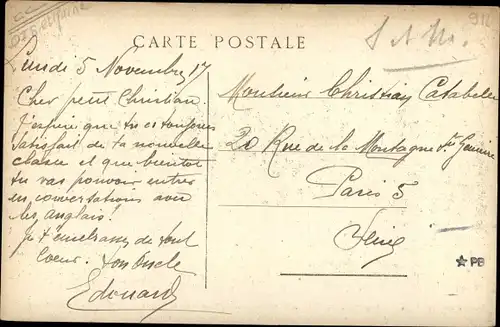 CARTE POSTALE
Lundi 5 Novembre 17
Cher petit Christian
J'espère que tu es toujours
satisfait de ta nouvelle
classe et que bientot
tu vas pouvoir entrer
en conversations avec
les anglais!
Je t'embrasse de tout
Coeur. Ton Oncle
Edouard
Monsieur Christian
20 Rue de la Montagne Ste Genevieve
Paris 5
Seine
PB